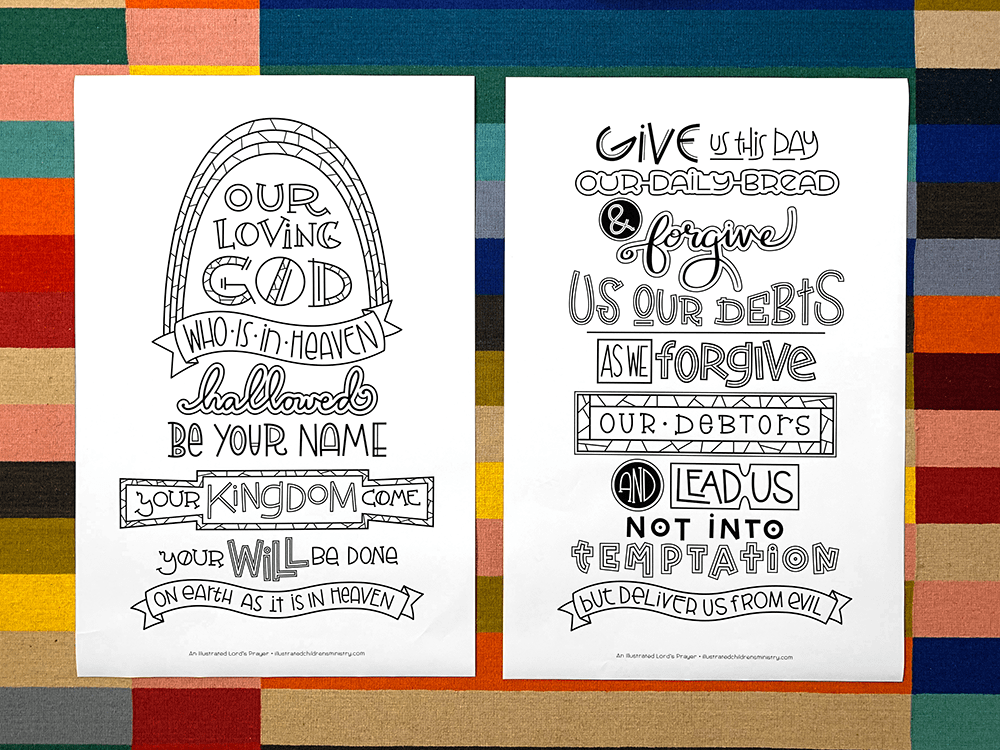 OUR
LOVING
GOD
WHO·IS·in·HEAVEN
hallowed
BE YOUR NAME
YOUR KINGDOM COME
YOUR WILL BE DONE
ON EARTH AS IT IS IN HEAVEN
An Illustrated Lord's Prayer • illustratedchildrensministry.com
GIVE US THIS DAY
OUR-DAILY-BREAD
& forgive
US OUR DEBTS
AS WE FORGIVE
OUR·DEBTORS
AND LEAD US
NOT INTO
TEMPTATION
BUT DELIVER US FROM EVIL
An Illustrated Lord's Prayer • illustratedchildrensministry.com